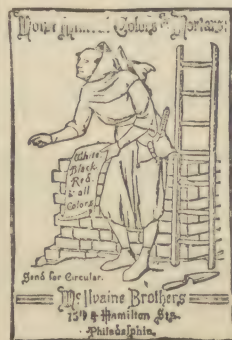 Colors & Mortars.
White
Black
Red
& all
Colors
Send for Circular.
McIlvaine Brothers
15th & Hamilton Sts.
Philadelphia.